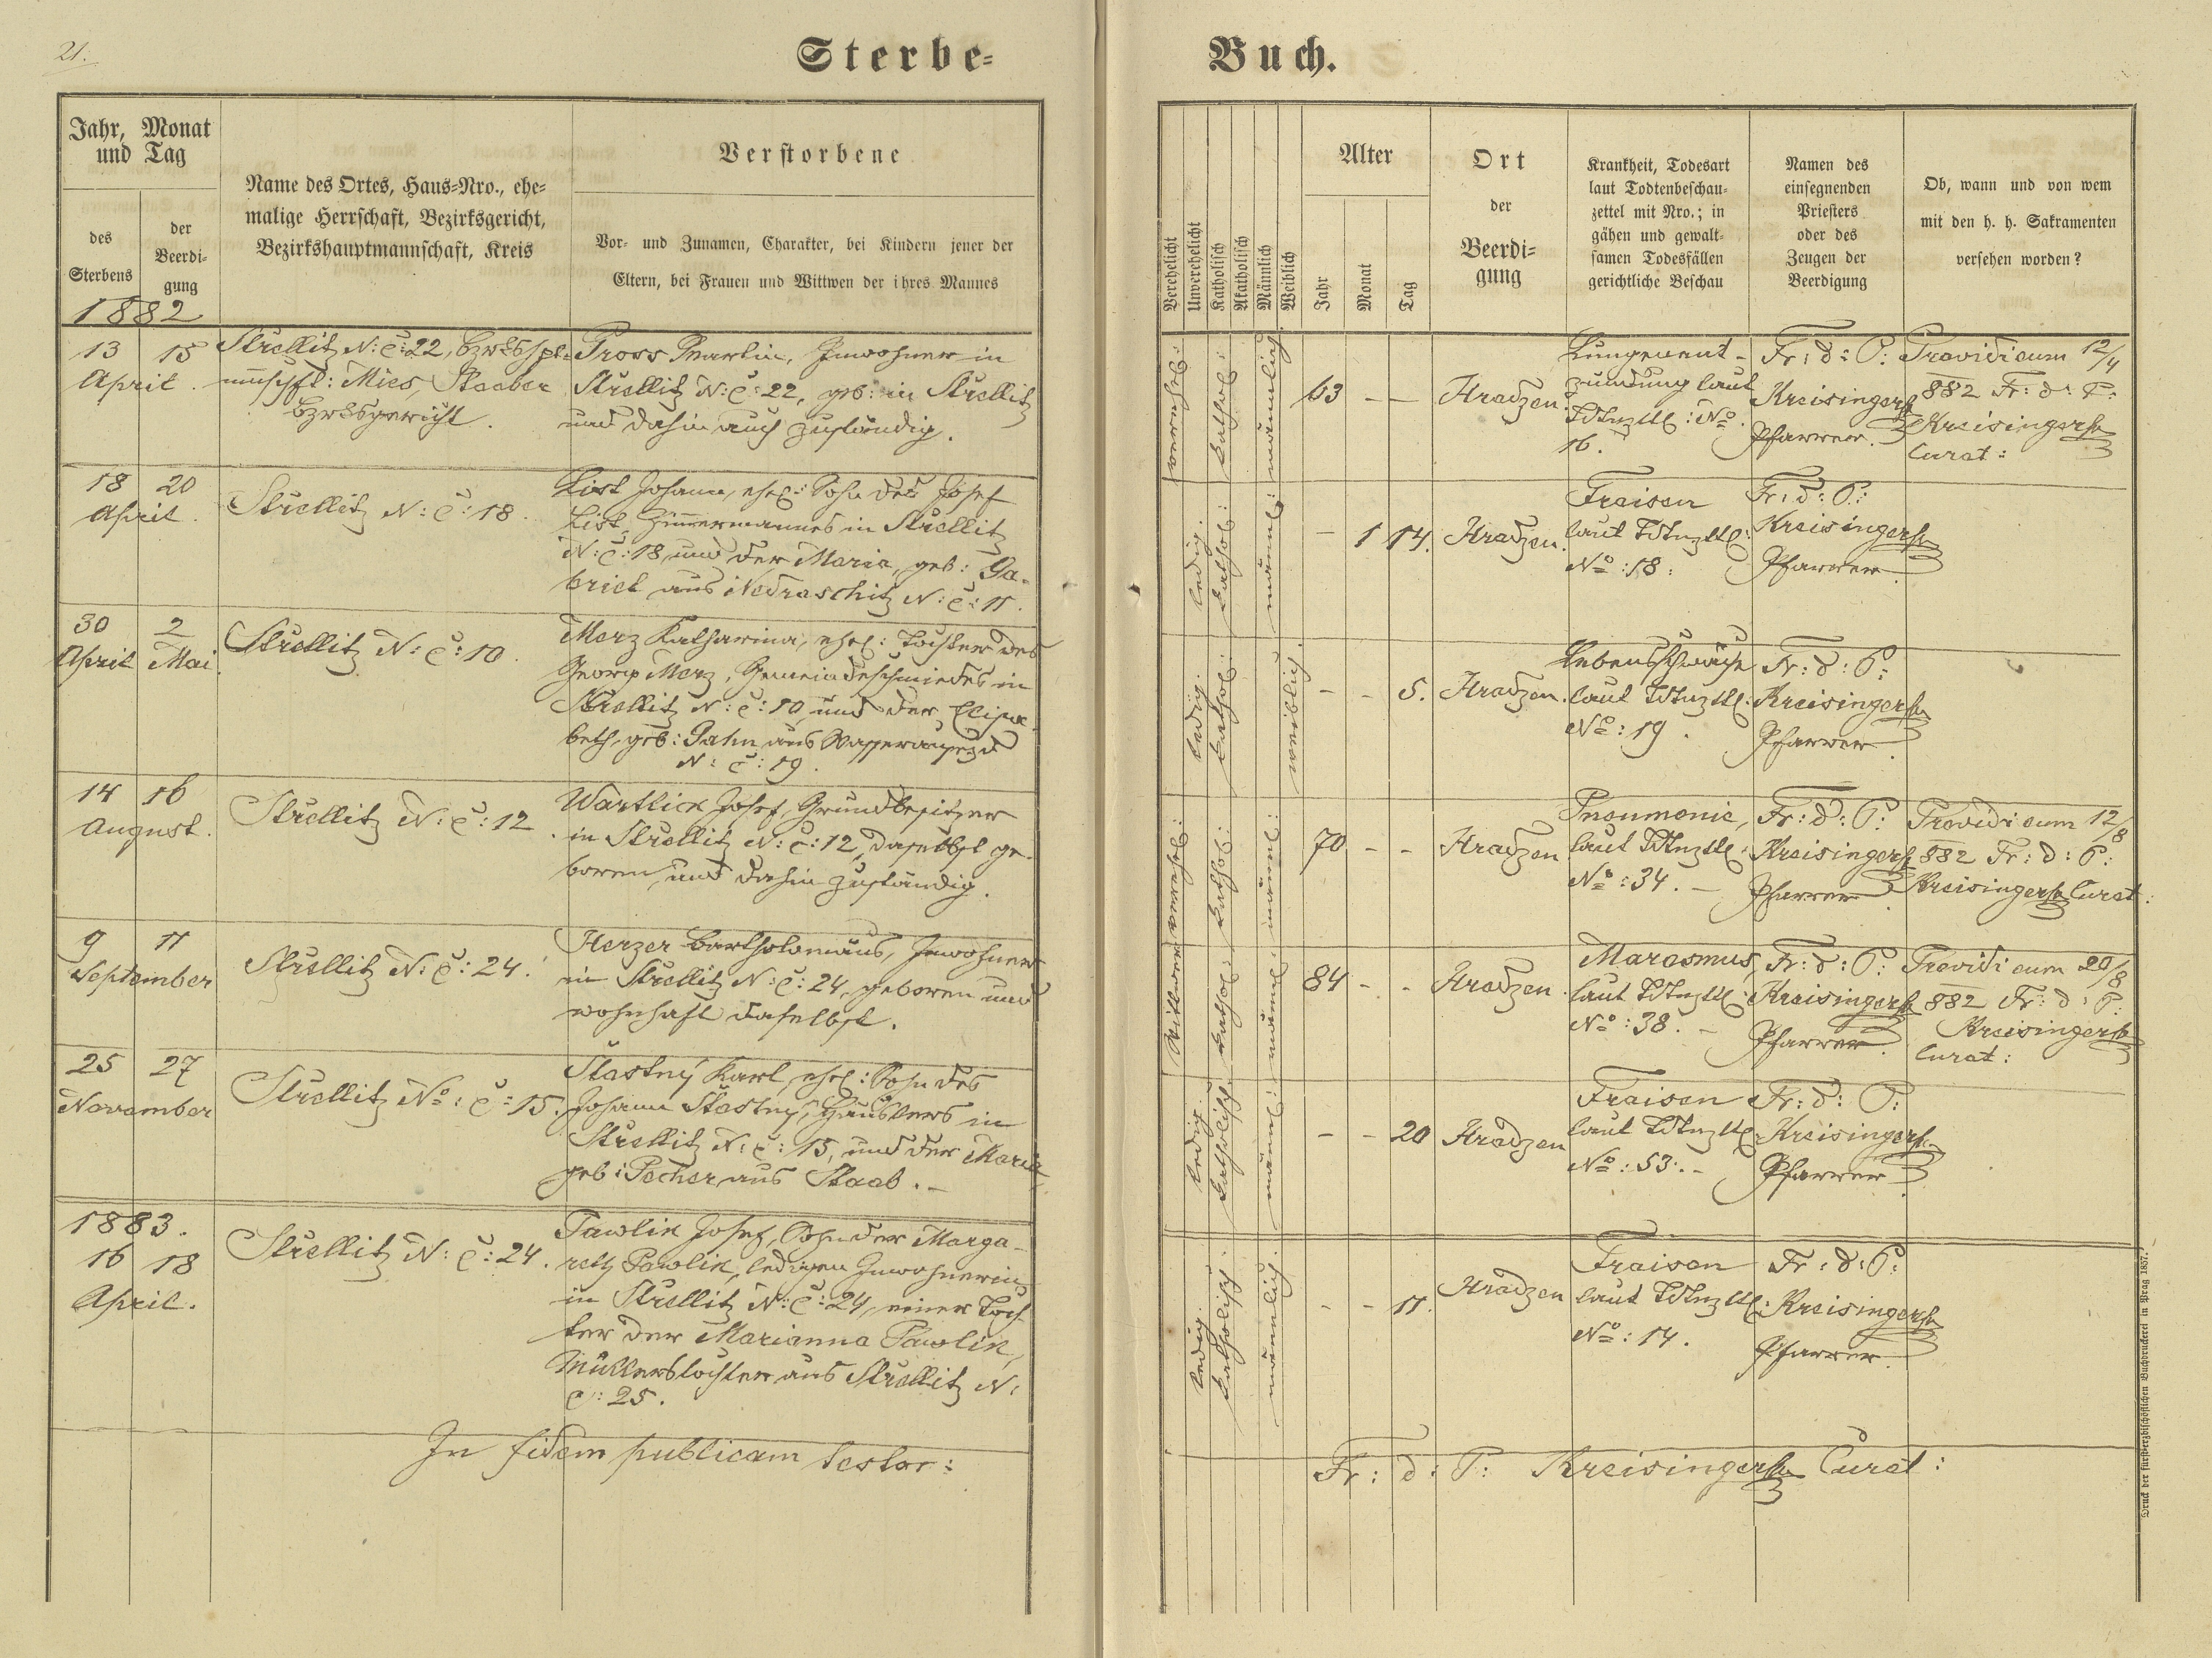 21.
Sterbe-
Jahr, Monat
und Tag
des
Sterbens
der
Beerdi-
gung
Name des Ortes, Haus-Nro., ehe-
malige Herrschaft, Bezirksgericht,
Bezirkshauptmannschaft, Kreis
Verstorbene
Vor- und Zunamen, Charakter, bei Kindern jener der
Eltern, bei Frauen und Wittwen der ihres Mannes
1882
13 15
April.
Strellitz N: C: 22,
Mies, Staaber
bzrksgericht.
Gross Martin, Inwohner in
Strellitz N: C: 22, geb: in Strellitz
und dahin auch zuständig.
18 20
April.
Strellitz N: C: 18.
List Johann, ehel: Sohn des Josef
List, Zimmermannes in Strellitz
N: C: 18, und der Maria, geb: Ga-
briel aus Nedraschitz N: C: 11.
30 2
April Mai.
Strellitz N: C: 10.
Merz Katharina, ehel: Tochter des
Georg Merz, Gemeindeschmiedes in
Strellitz N: C: 10, und der Elisa-
beth, geb: Pahn aus
N: C: 19.
14 16
August.
Strellitz N: C: 12.
Wartlick Josef, Grundbesitzer
in Strellitz N: C: 12, daselbst ge-
boren, und dahin zuständig.
9 11
September
Strellitz N: C: 24.
Herzer Bartholomäus, Inwohner
in Strellitz N: C: 24, geboren und
wohnhaft daselbst.
25 27
November
Strellitz No: C: 15.
Stastny Karl, ehel: Sohn des
Johann Stastny, Häuslers in
Strellitz N: C: 15, und der Maria
geb: Pecher aus Staab. –
1883.
16 18
April.
Strellitz N: C: 24.
Pawlik Josef, Sohn der Marga-
reth Pawlik, ledigen Inwohnerin
in Strellitz N: C: 24, einer Toch-
ter der Marianna Pawlik,
Müllerstochter aus Strellitz N:
C: 25.
In fidem publicam testor:
Buch.
Verehelicht
Unverehelicht
Katholisch
Akatholisch
Männlich
Weiblich
Alter
Jahr
Monat
Tag
Ort
der
Beerdi-
gung
Krankheit, Todesart
laut Todtenbeschau-
zettel mit Nro.; in
gähen und gewalt-
samen Todesfällen
gerichtliche Beschau
Namen des
einsegnenden
Priesters
oder des
Zeugen der
Beerdigung
Ob, wann und von wem
mit den h. h. Sakramenten
versehen worden?
verehel:
kathol:
männlich.
63 – –
Hradzen.
Lungenent-
zündung laut
Tdtnzttl: No.
16.
Fr: d: P:
Kreisinger
Pfarrer.
Providi eum 12/4
882 Fr: d: P:
Kreisinger
Curat:
ledig.
kathol:
männl:
– 1 14.
Hradzen.
Fraisen
laut Tdtnzttl:
No: 18.
Fr: d: P:
Kreisinger
Pfarrer.
ledig.
kathol:
weiblich.
– – 5.
Hradzen.
Lebensschwäche
laut Tdtnzttl:
No: 19.
Fr: d: P:
Kreisinger
Pfarrer.
verehel:
kathol:
männl:
70 – –
Hradzen
Pneumonie,
laut Tdtnzttl:
No: 34. –
Fr: d: P:
Kreisinger
Pfarrer.
Providi eum 12/8
882 Fr: d: P:
Kreisinger Curat:
Witwer
kathol:
männl:
84 – –
Hradzen.
Marasmus,
laut Tdtnzttl:
No: 38. –
Fr: d: P:
Kreisinger
Pfarrer.
Providi eum 20/8
882 Fr: d: P:
Kreisinger
Curat:
ledig.
katholisch.
männl:
– – 20
Hradzen
Fraisen
laut Tdtnzttl:
No: 53. –
Fr: d: P:
Kreisinger
Pfarrer.
ledig.
katholisch.
männlich.
– – 11.
Hradzen
Fraisen
laut Tdtnzttl:
No: 14.
Fr: d: P:
Kreisinger
Pfarrer.
Fr: d: P: Kreisinger Curat:
Druck der fürsterzbischöflichen Buchdruckerei in Prag 1857.